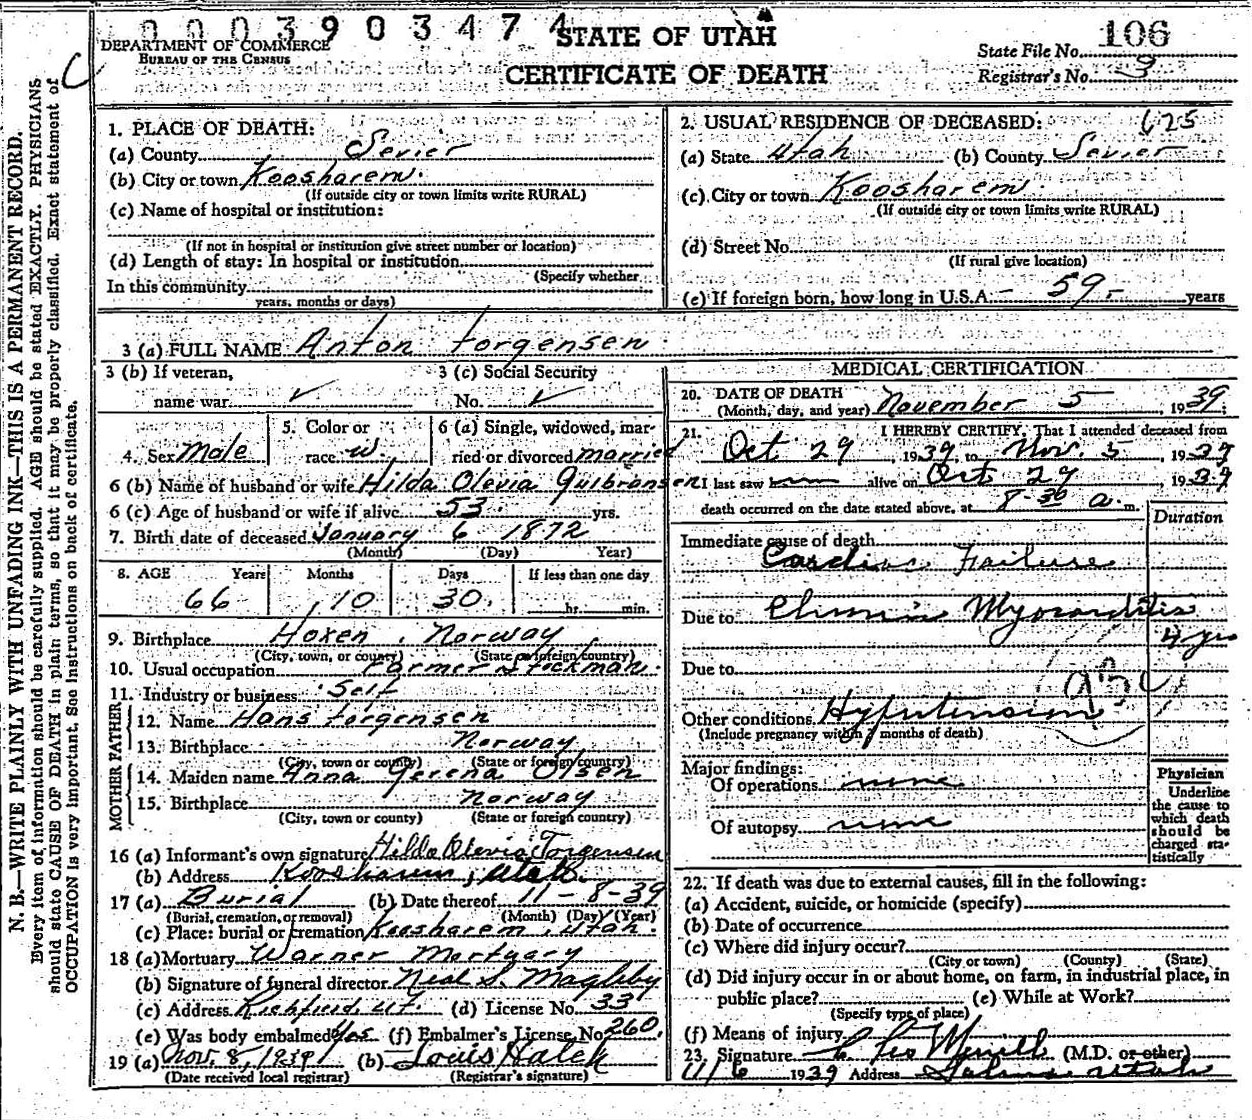 0003903474
STATE OF UTAH
DEPARTMENT OF COMMERCE
BUREAU OF THE CENSUS
CERTIFICATE OF DEATH
State File No. 106
Registrar's No. 9
N. B.—WRITE PLAINLY WITH UNFADING INK—THIS IS A PERMANENT RECORD.
Every item of information should be carefully supplied. AGE should be stated EXACTLY. PHYSICIANS
should state CAUSE OF DEATH in plain terms, so that it may be properly classified. Exact statement of
OCCUPATION is very important. See instructions on back of certificate.
1. PLACE OF DEATH:
(a) County Sevier
(b) City or town Koosharem
(If outside city or town limits write RURAL)
(c) Name of hospital or institution:
(If not in hospital or institution give street number or location)
(d) Length of stay: In hospital or institution
(Specify whether
In this community
years, months or days)
2. USUAL RESIDENCE OF DECEASED: 625
(a) State Utah (b) County Sevier
(c) City or town Koosharem
(If outside city or town limits write RURAL)
(d) Street No.
(If rural give location)
(e) If foreign born, how long in U.S.A. 59 years
3 (a) FULL NAME Anton Torgensen
3 (b) If veteran, 3 (c) Social Security
name war No.
4. Sex Male 5. Color or race w. 6 (a) Single, widowed, married or divorced married
6 (b) Name of husband or wife Hilda Olevia Gulbransen
6 (c) Age of husband or wife if alive 53 yrs.
7. Birth date of deceased January 6 1872
(Month) (Day) Year)
8. AGE Years Months Days If less than one day
66 10 30 hr. min.
9. Birthplace Hoxen, Norway
(City, town, or county) (State or foreign country)
10. Usual occupation Farmer Stockman
11. Industry or business Self
FATHER
12. Name Hans Torgensen
13. Birthplace Norway
(City, town or county) (State or foreign country)
MOTHER
14. Maiden name Anna Olsen
15. Birthplace Norway
(City, town or county) (State or foreign country)
16 (a) Informant's own signature Hilda Olevia Torgensen
(b) Address Koosharem, Utah.
17 (a) Burial (b) Date thereof 11-8-39
(Burial, cremation, or removal) (Month) (Day) (Year)
(c) Place: burial or cremation Koosharem, Utah.
18 (a) Mortuary Warner Mortuary
(b) Signature of funeral director Neal S. Magleby
(c) Address Richfield, Ut. (d) License No. 33
(e) Was body embalmed Yes (f) Embalmer's License No. 260
19 (a) Nov. 8, 1939 (b) Louis Hatch
(Date received local registrar) (Registrar's signature)
MEDICAL CERTIFICATION
20. DATE OF DEATH
(Month, day, and year) November 5, 1939
21. I HEREBY CERTIFY, That I attended deceased from
Oct 29, 1939, to Nov. 5, 1939
I last saw alive on Oct 29 1939
death occurred on the date stated above, at 8-30 a. m.
Duration
Immediate cause of death
Cardiac Failure
Due to Chronic Myocarditis
4 yrs
Due to
Other conditions Hypertension
(Include pregnancy within 3 months of death)
Major findings:
Of operations none
Of autopsy none
Physician
Underline
the cause to
which death
should be
charged sta-
tistically
22. If death was due to external causes, fill in the following:
(a) Accident, suicide, or homicide (specify)
(b) Date of occurrence
(c) Where did injury occur?
(City or town) (County) (State)
(d) Did injury occur in or about home, on farm, in industrial place, in
public place? (e) While at Work?
(Specify type of place)
(f) Means of injury
23. Signature Merrill (M.D. or other)
11/6 1939 Address Salina Utah